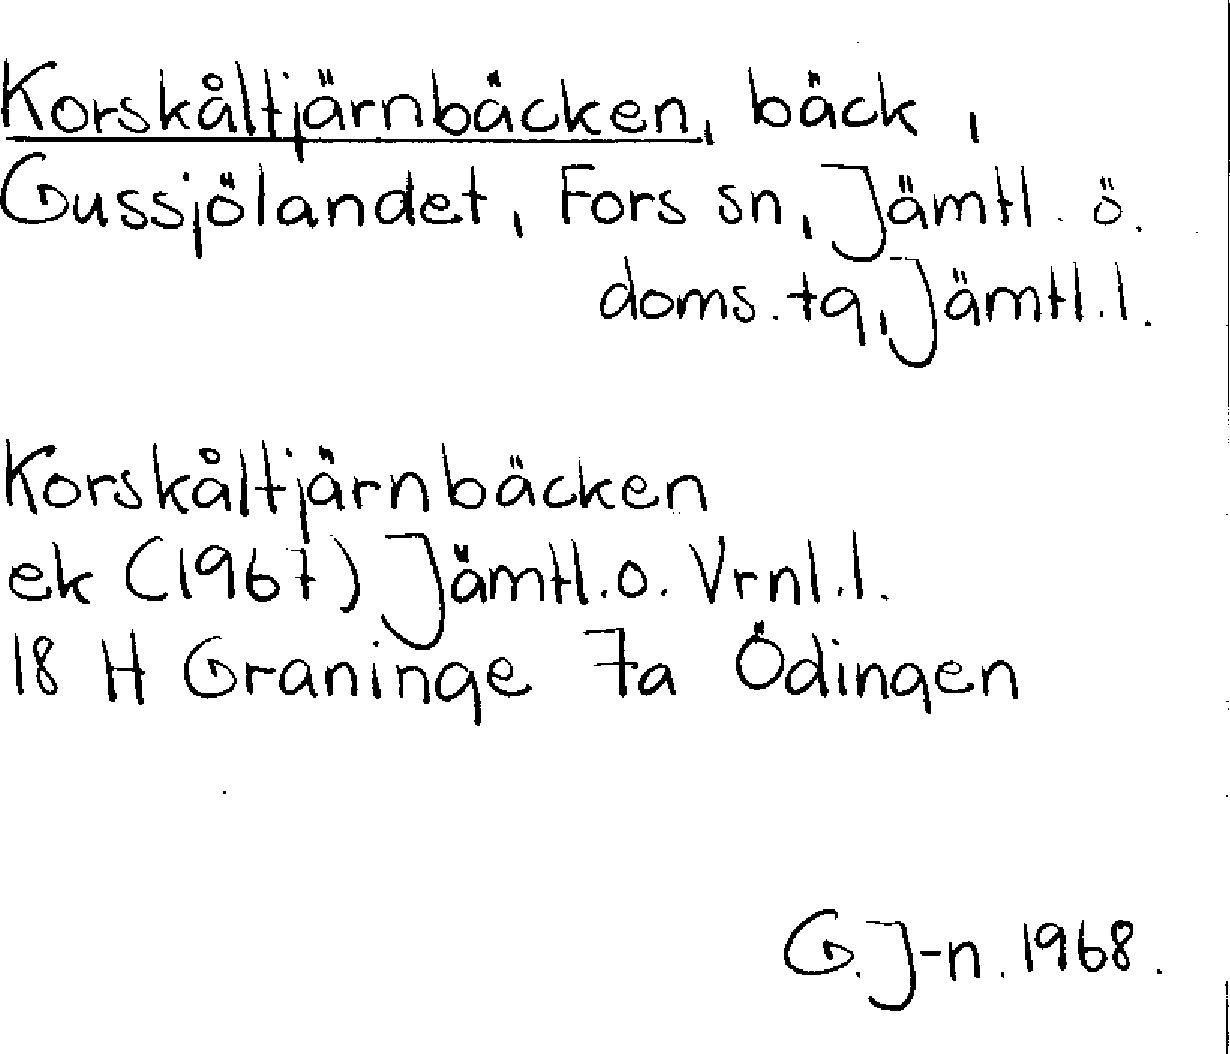 Korskåltjärnbäcken, bäck,
Gussjölandet, Fors sn, Jämtl. ö.
doms. tg, Jämtl.l.
Korskåltjärnbäcken
ek (1967) Jämtl.o. Vrnl.l.
18 H Graninge 7a Ödingen
G.J-n. 1968.